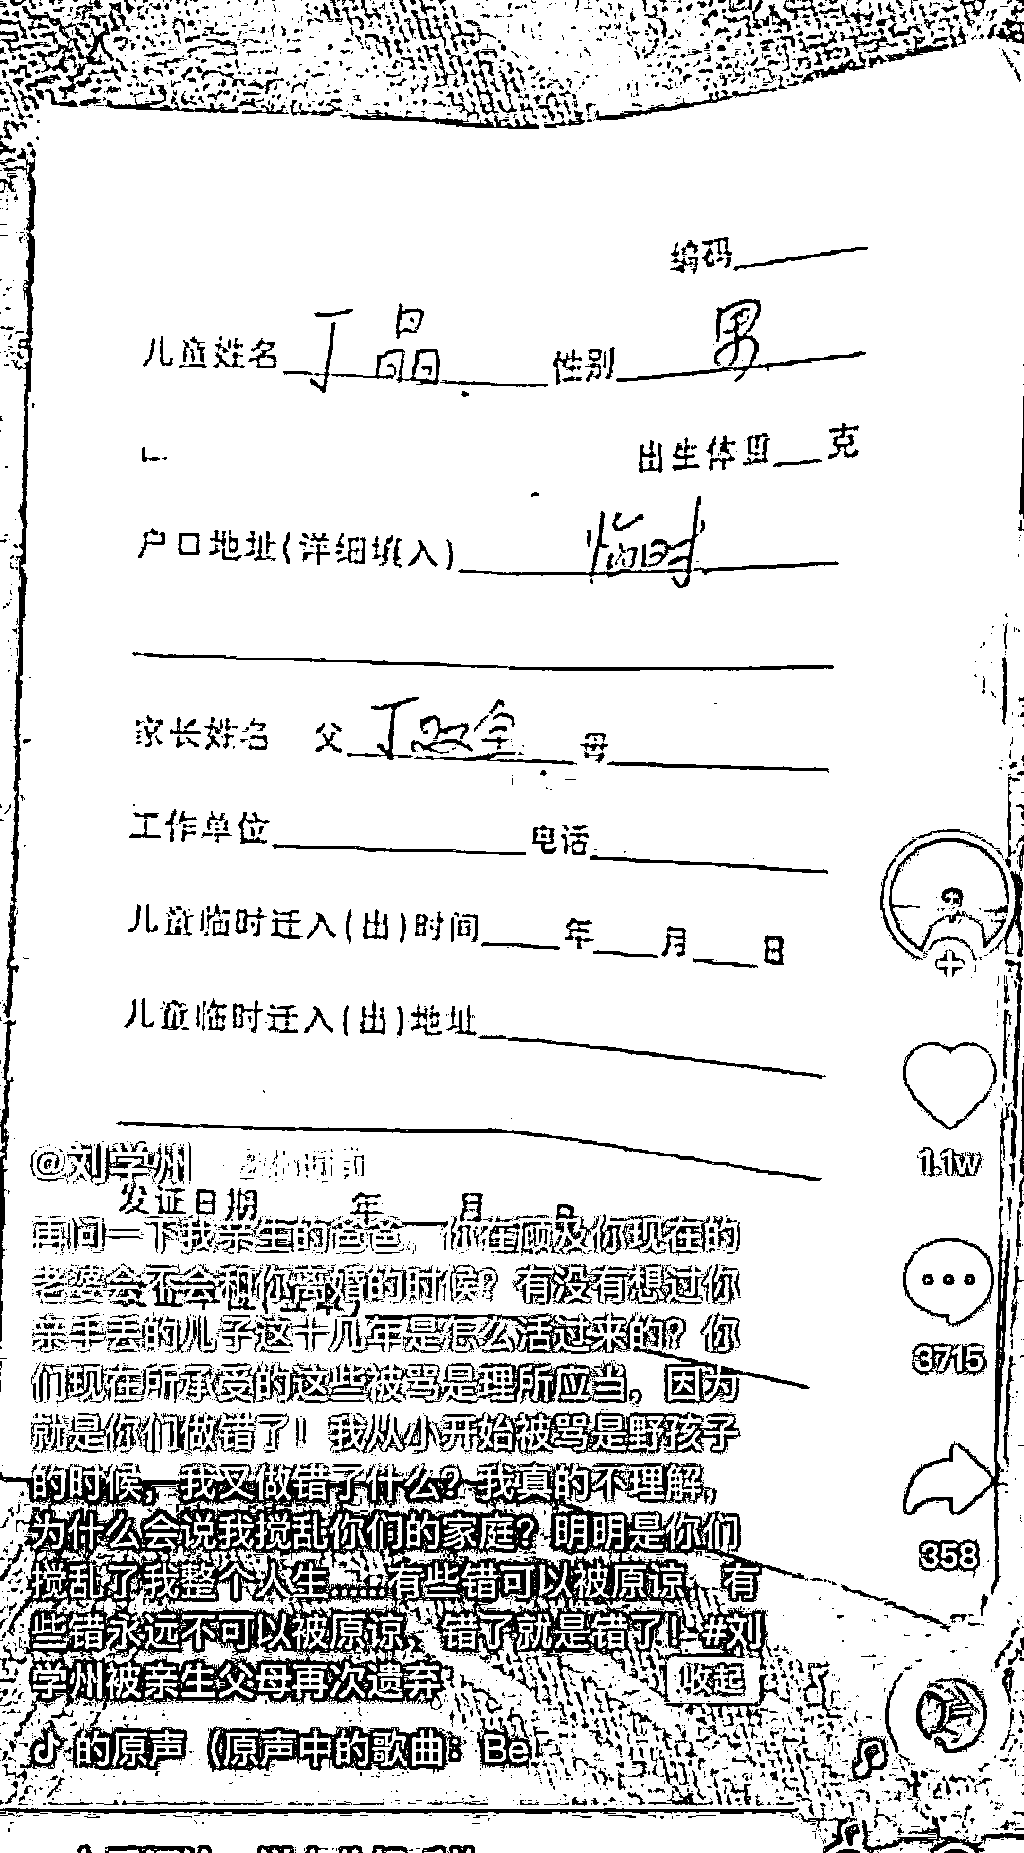 编码
儿童姓名 丁晶 性别 男
出生体重 克
户口地址(详细填入) 临时
家长姓名 父 丁双全 母
工作单位 电话
儿童临时迁入(出)时间 年 月 日
儿童临时迁入(出)地址
@刘学州
发证日期 年 月 日
再问一下我亲生的爸爸，你在顾及你现在的
老婆会不会和你离婚的时候？有没有想过你
亲手丢的儿子这十几年是怎么活过来的？你
们现在所承受的这些被骂是理所应当，因为
就是你们做错了！我从小开始被骂是野孩子
的时候，我又做错了什么？我真的不理解，
为什么会说我搅乱你们的家庭？明明是你们
搅乱了我整个人生……有些错可以被原谅，有
些错永远不可以被原谅，错了就是错了！#刘
学州被亲生父母再次遗弃 收起
的原声（原声中的歌曲：Be
1.1w
3715
358